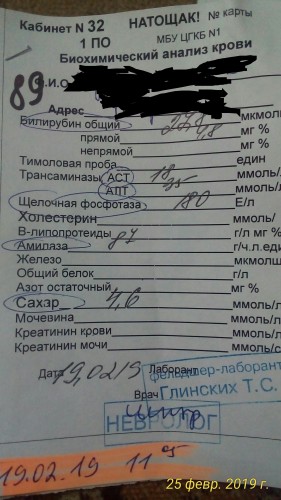 Кабинет N 32 НАТОЩАК! № карты
1 ПО МБУ ЦГКБ N1
Биохимический анализ крови
89
Адрес
Билирубин общий 27,8 мкмол
прямой 4,8 мг %
непрямой мг %
Тимоловая проба един
Трансаминазы АСТ 18 ммоль/л
АЛТ 35 ммоль/л
Щелочная фосфотаза 180 Е/л
Холестерин ммоль/
В-липолротеиды г/л мг %
Амилаза 87 г/ч.л.ед
Железо мкмолш
Общий белок г/л
Азот остаточный мг %
Сахар 4,6 ммоль/л
Мочевина ммоль/л
Креатинин крови ммоль/
Креатинин мочи ммоль/с
Дата 19,0219 Лаборант
фельдшер-лаборант
Врач Глинских Т.С.
центр
НЕВРОЛОГ
19.02.19 11 05
25 февр. 2019 г.